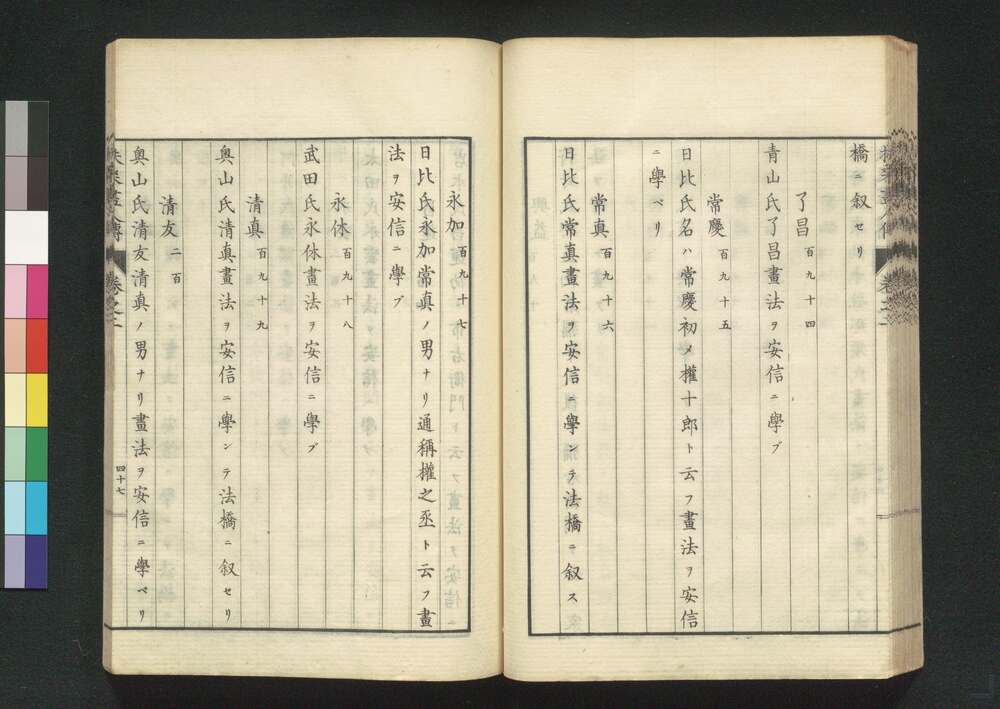 橋ニ叙セリ
了昌 百九十四
青山氏了昌畫法ヲ安信ニ學ブ
常慶 百九十五
日比氏名ハ常慶初メ權十郎ト云フ畫法ヲ安信
ニ學ベリ
常真 百九十六
日比氏常真畫法ヲ安信ニ學ンテ法橋ニ叙ス
永加 百九十七
日比氏永加常真ノ男ナリ通稱權之丞ト云フ畫
法ヲ安信ニ學ブ
永休 百九十八
武田氏永休畫法ヲ安信ニ學ブ
清真 百九十九
奥山氏清真畫法ヲ安信ニ學ンテ法橋ニ叙セリ
清友 二百
奥山氏清友清真ノ男ナリ畫法ヲ安信ニ學ベリ
畫人傳 卷之二
四十七